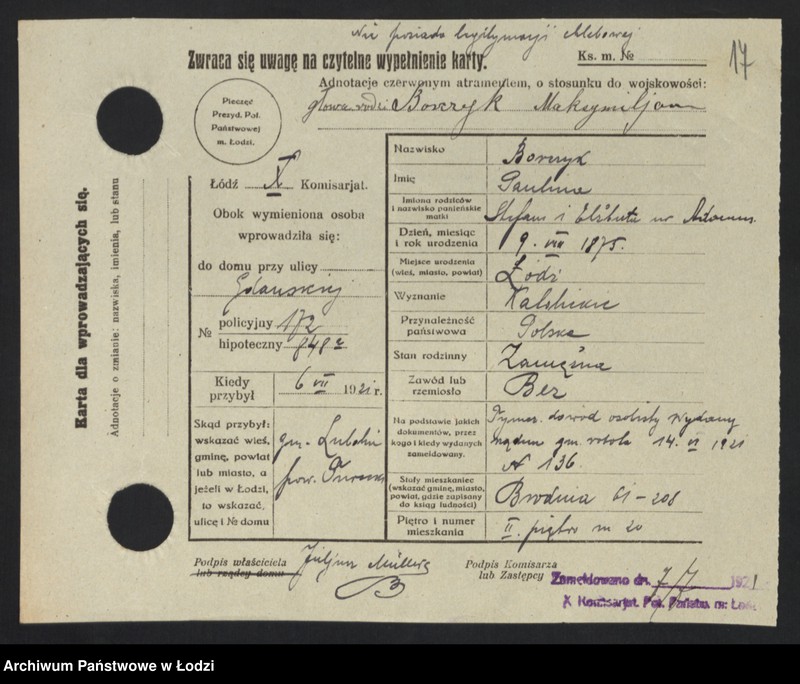 Nie posiada legitymacji chlebowej
Zwraca się uwagę na czytelne wypełnienie karty.
Ks. m. №
17
Adnotacje czerwonym atramentem, o stosunku do wojskowości:
głowa rodzi Borczyk Maksymiljan
Pieczęć
Prezyd. Pol.
Państwowej
m. Łodzi.
Karta dla wprowadzających się.
Adnotacje o zmianie: nazwiska, imienia, lub stanu
Łódź X Komisarjat.
Obok wymieniona osoba
wprowadziła się:
do domu przy ulicy
Gdańskiej
№ policyjny 172
hipoteczny 848
Kiedy przybył 6 VII 1921 r.
Skąd przybył:
wskazać wieś,
gminę, powiat
lub miasto, a
jeżeli w Łodzi,
to wskazać,
ulicę i № domu
gm. Lubolin
pow.
Nazwisko Borczyk
Imię Paulina
Imiona rodziców
i nazwisko panieńskie
matki
Stefan i Elżbieta
Dzień, miesiąc
i rok urodzenia
9. VIII 1875.
Miejsce urodzenia
(wieś, miasto, powiat)
Łódź
Wyznanie Katolickie
Przynależność
państwowa
Polska
Stan rodzinny Zamężna
Zawód lub
rzemiosło
Bez
Na podstawie jakich
dokumentów, przez
kogo i kiedy wydanych
zameldowany.
Tymcz. dowód osobisty wydany
gm. 14. VI 1921
№ 136.
Stały mieszkaniec
(wskazać gminę, miasto,
powiat, gdzie zapisany
do ksiąg ludności)
Brodnia 61-208
Piętro i numer
mieszkania
II piętro m 20
Podpis właściciela
lub rządcy domu
Juljan Müller
Podpis Komisarza
lub Zastępcy
Zameldowano dn. 7/7 1921
X Komisarjat. Pol. Państw. m. Łodzi
Archiwum Państwowe w Łodzi